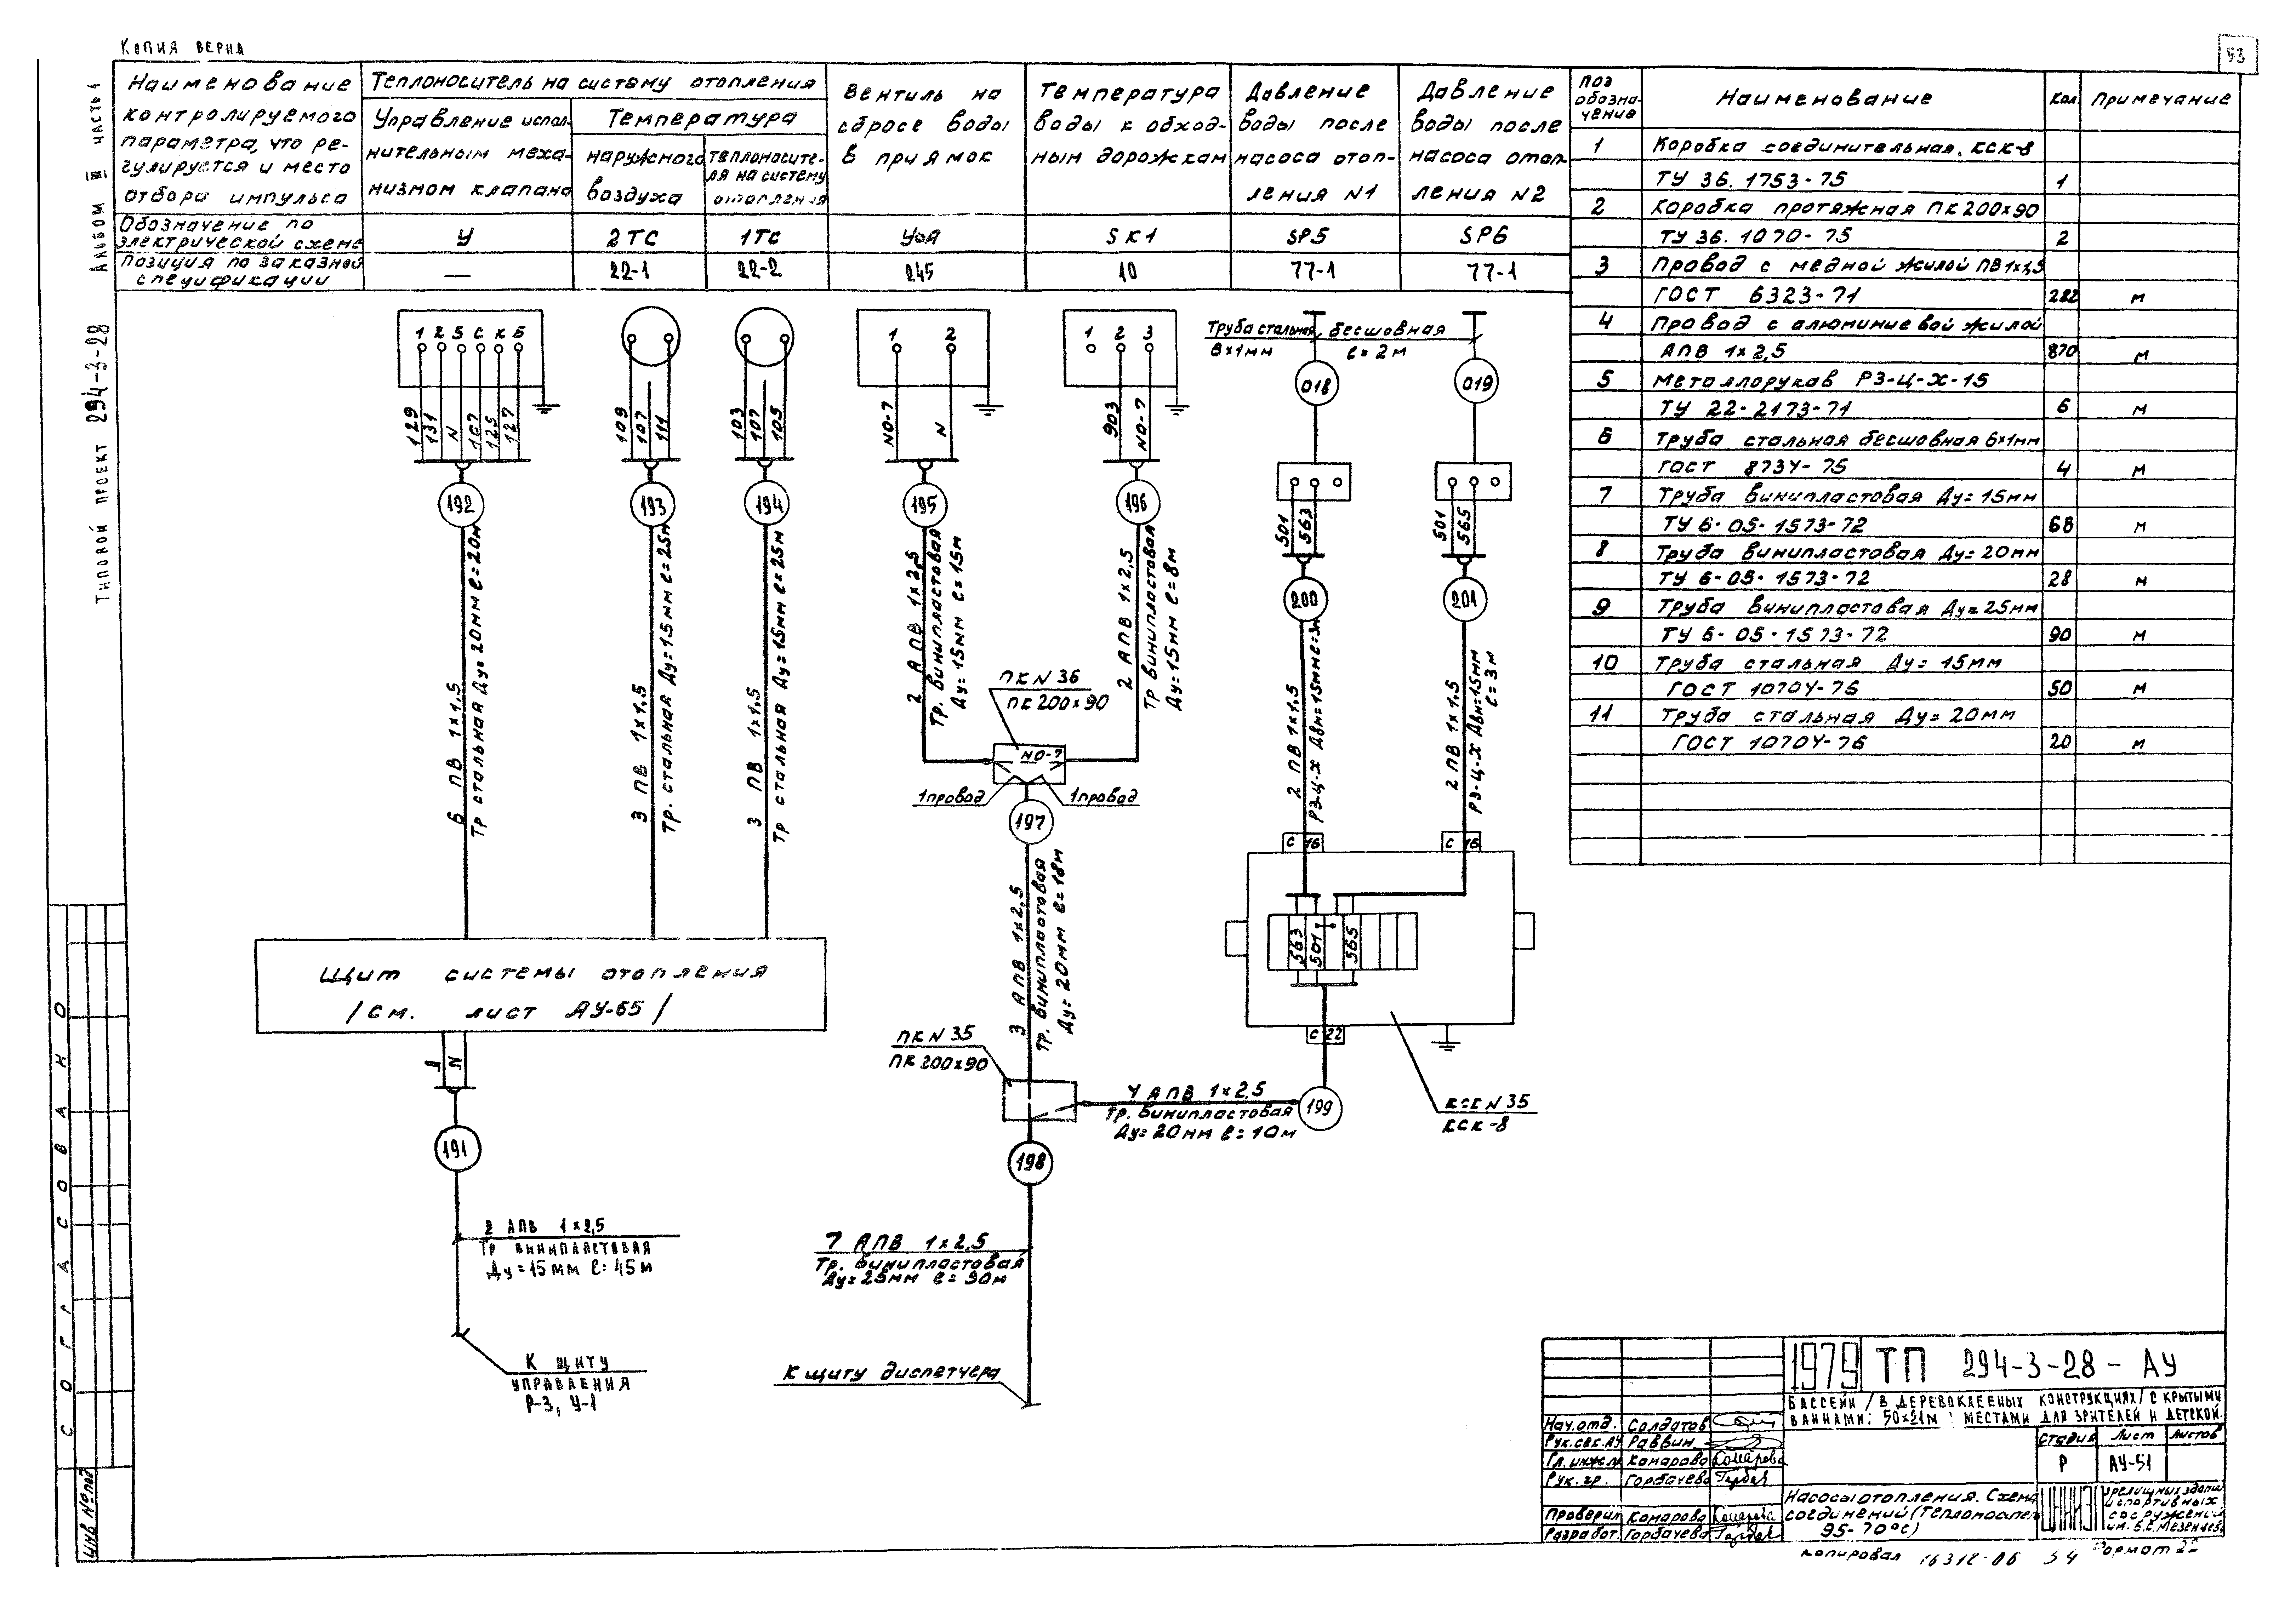 Копия верна
53
Альбом III часть 1
Типовой проект 294-3-28
Наименование
контролируемого
параметра, что ре-
гулируется и место
отбора импульса
Теплоноситель на систему отопления
Управление испол-
нительным меха-
низмом клапана
Температура
наружного
воздуха
теплоносите-
ля на систему
отопления
Вентиль на
сбросе воды
в приямок
Температура
воды к обход-
ным дорожкам
Давление
воды после
насоса отоп-
ления N1
Давление
воды после
насоса отоп-
ления N2
Обозначение по
электрической схеме
У
2ТС
1ТС
SK1
SP5
SP6
Позиция по заказной
спецификации
—
22-1
22-2
245
10
77-1
77-1
Поз обозна-чение
Наименование
Кол.
Примечание
1 Коробка соединительная, КСК-8
ТУ 36.1753-75 1
2 Коробка протяжная ПК200х90
ТУ 36.1070-75 2
3 Провод с медной жилой ПВ1х1,5
ГОСТ 6323-71 282 м
4 Провод с алюминиевой жилой
АПВ 1х2,5 870 м
5 Металлорукав РЗ-Ц-Х-15
ТУ 22-2173-71 6 м
6 Труба стальная бесшовная 6х1мм
ГОСТ 8734-75 4 м
7 Труба винипластовая Ду=15мм
ТУ 6-05-1573-72 68 м
8 Труба винипластовая Ду=20мм
ТУ 6-05-1573-72 28 м
9 Труба винипластовая Ду=25мм
ТУ 6-05-1573-72 90 м
10 Труба стальная Ду=15мм
ГОСТ 10704-76 50 м
11 Труба стальная Ду=20мм
ГОСТ 10704-76 20 м
1 2 5 С К Б
129 131 N 107 125 127
109 107 111
103 107 105
1 2
NО-7 N
1 2 3
903 NО-7
Труба стальная бесшовная
8х1мм ℓ=2м
018
019
501 563
501 565
192
193
194
195
196
200
201
6 ПВ 1х1,5
Тр стальная Ду=20мм ℓ=20м
3 ПВ 1х1,5
Тр. стальная Ду=15мм ℓ=25м
3 ПВ 1х1,5
Тр стальная Ду=15мм ℓ=25м
2 АПВ 1х2,5
Тр. винипластовая
Ду=15мм ℓ=15м
2 АПВ 1х2,5
Тр винипластовая
Ду=15мм ℓ=8м
2 ПВ 1х1,5
РЗ-Ц-Х Двн=15мм ℓ=3м
2 ПВ 1х1,5
РЗ-Ц-Х Двн=15мм
ℓ=3м
ПК N 36
ПК 200х90
NО-7
1 провод
1 провод
197
3 АПВ 1х2,5
Тр. винипластовая
Ду=20мм ℓ=18м
С 16
С 16
563 501 565
С 22
Щит системы отопления
/См. лист АУ-65/
ПК N 35
ПК 200х90
4 АПВ 1х2,5
Тр. винипластовая
Ду=20мм ℓ=10м
199
КСК N 35
КСК-8
N
191
198
2 АПВ 1х2,5
Тр винипластовая
Ду=15мм ℓ=45м
7 АПВ 1х2,5
Тр. винипластовая
Ду=25мм ℓ=90м
К щиту
управления
Р-3, У-1
К щиту диспетчера
Согласовано
Инв № подл
1979
ТП 294-3-28-АУ
Бассейн /в деревоклееных конструкциях/ с крытыми
ваннами: 50х21м с местами для зрителей и детской.
Нач.отд. Солдатов
Рук.сек.АУ Раввин
Гл.инж.пр Комарова Комарова
Рук.гр. Горбачева
Проверил Комарова
Разработ. Горбачева
Стадия Лист Листов
Р АУ-51
Насосы отопления. Схема
соединений (теплоноситель
95-70°С)
ЦНИИЭП
зрелищных зданий
и спортивных
сооружений
им. Б.С. Мезенцева
Копировал 16312-06 54 Формат 22